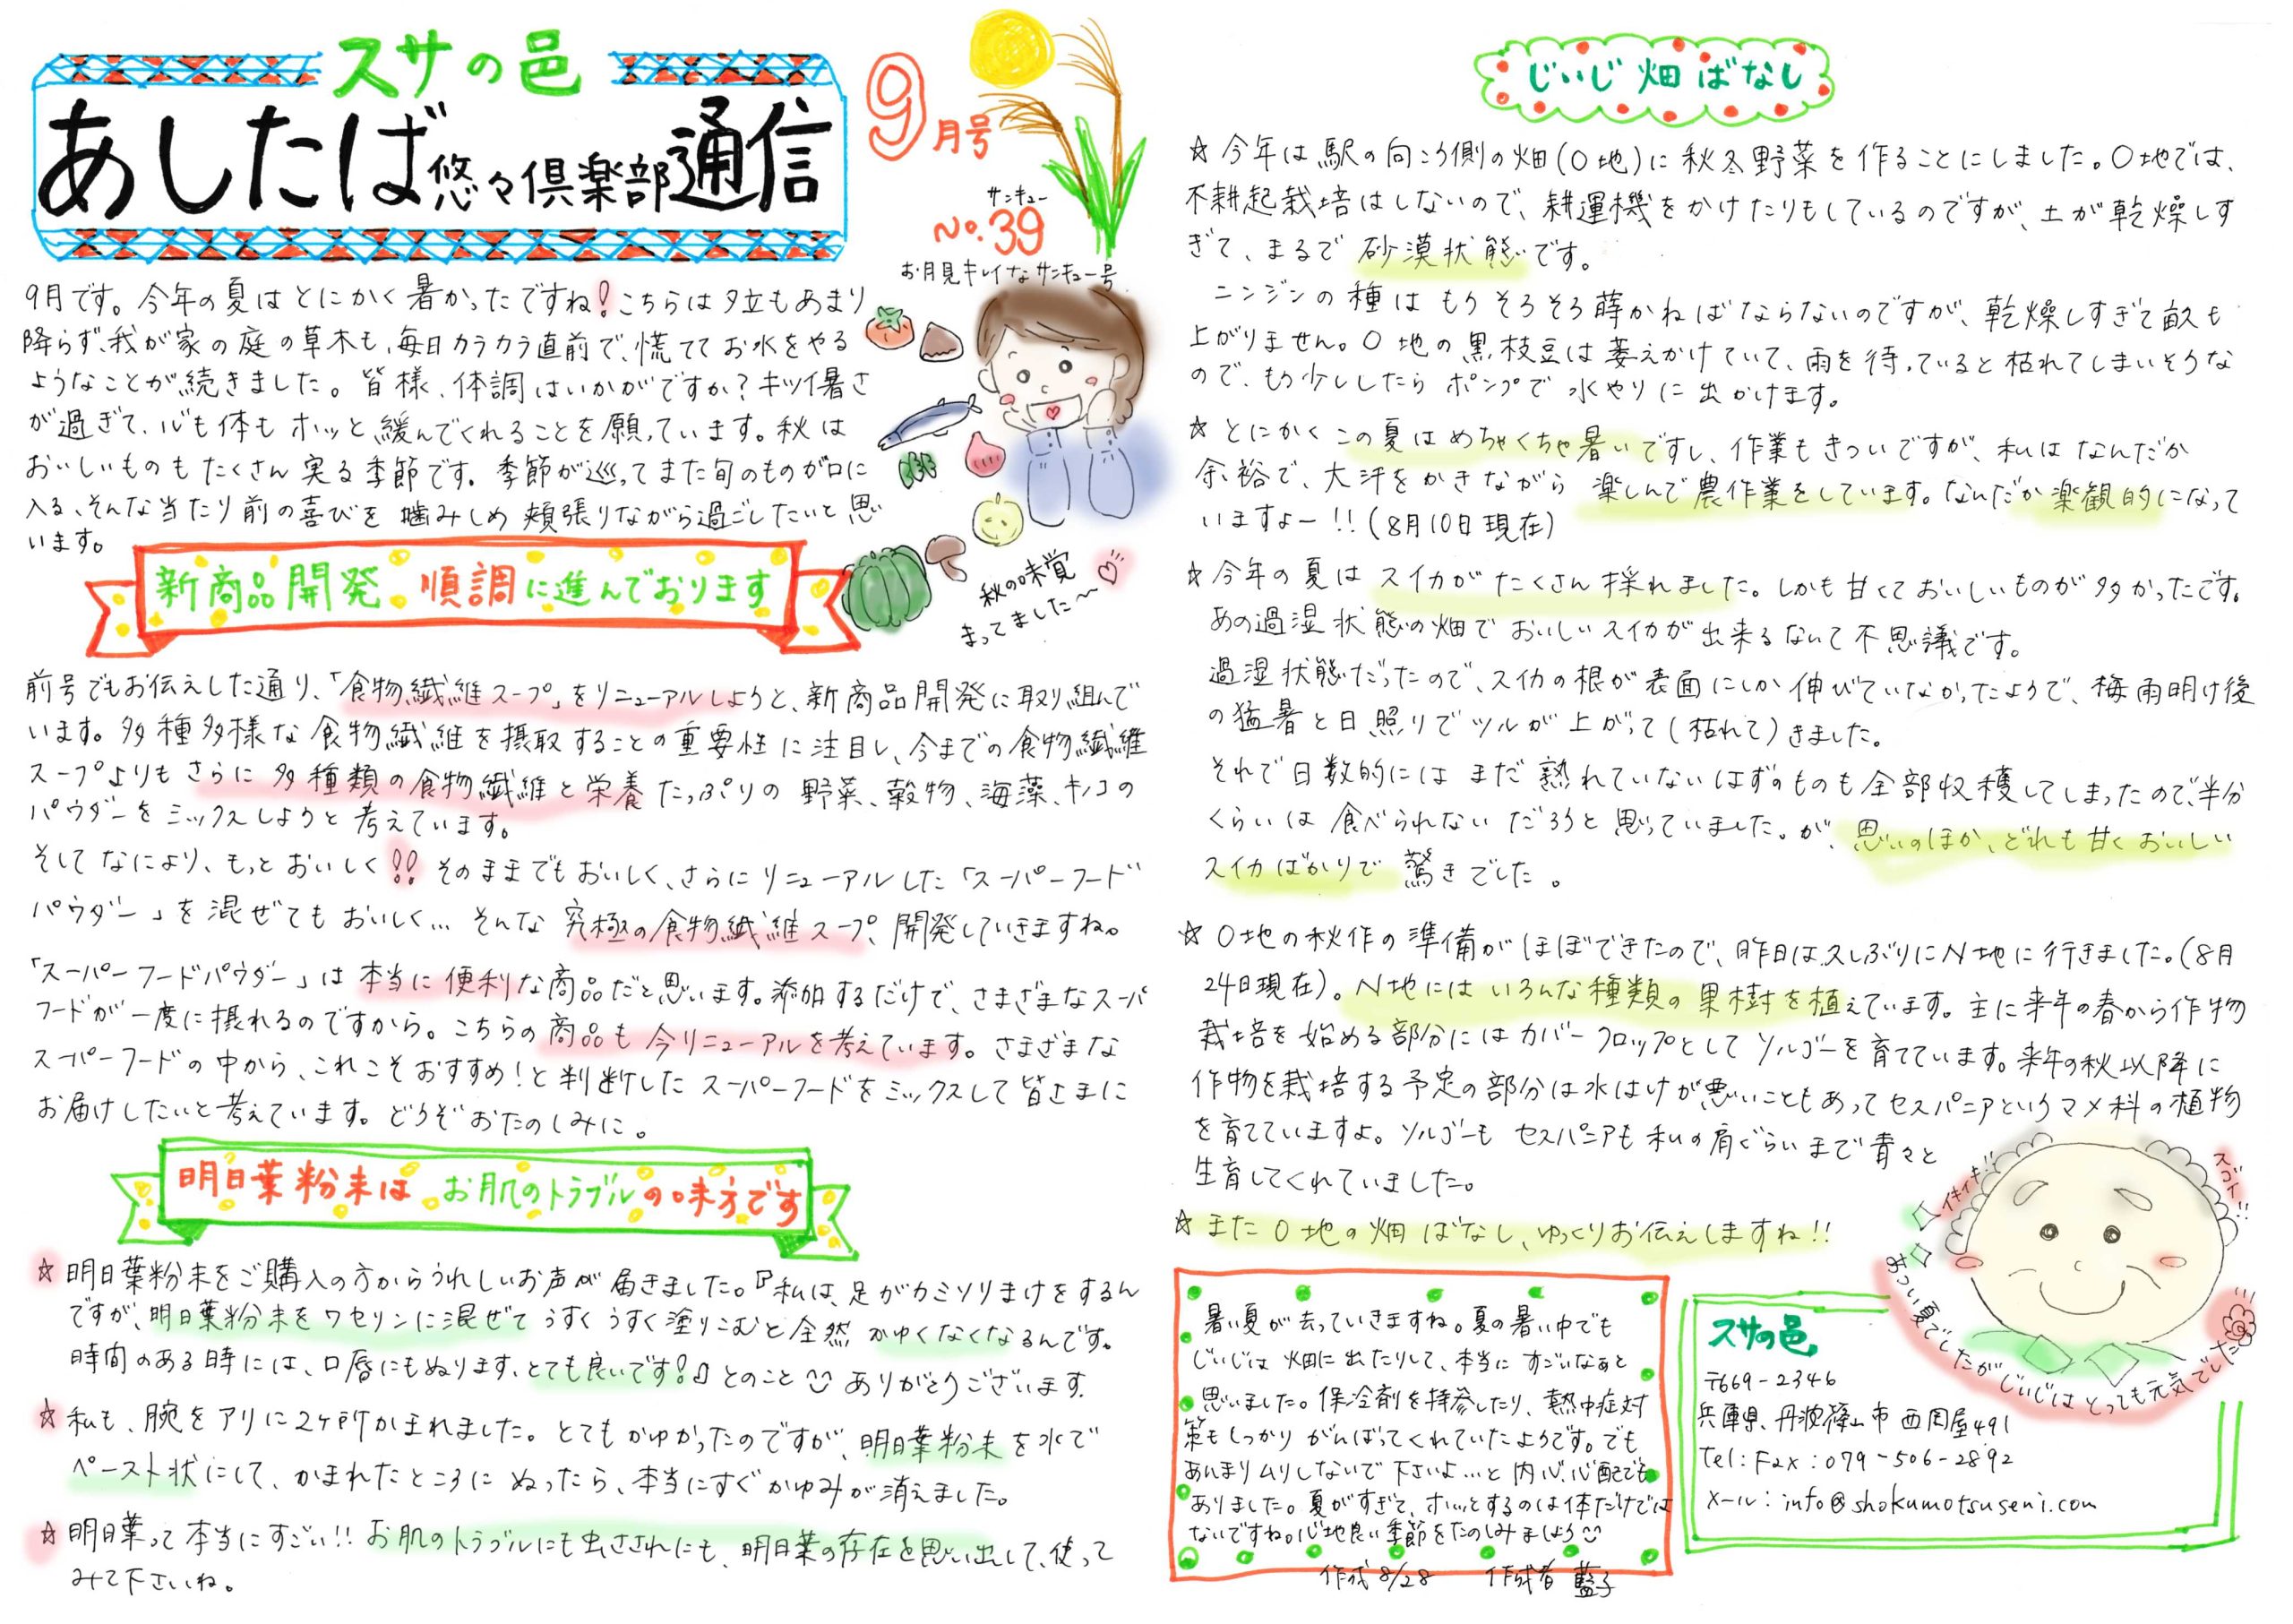 スサの邑
あしたば悠々倶楽部通信
9月号
サンキュー
No.39
お月見キレイなサンキュー号
9月です。今年の夏はとにかく暑かったですね!こちらは夕立もあまり
降らず、我が家の庭の草木も、毎日カラカラ直前で、慌ててお水をやる
ようなことが続きました。皆様、体調はいかがですか?キツイ暑さ
が過ぎて、心も体もホッと緩んでくれることを願っています。秋は
おいしいものもたくさん実る季節です。季節が巡ってまた旬のものが口に
入る、そんな当たり前の喜びを噛みしめ頬張りながら過ごしたいと思
います。
秋の味覚
まってました〜♡
新商品開発、順調に進んでおります
前号でもお伝えした通り、「食物繊維スープ」をリニューアルしようと、新商品開発に取り組んで
います。多種多様な食物繊維を摂取することの重要性に注目し、今までの食物繊維
スープよりもさらに多種類の食物繊維と栄養たっぷりの野菜、穀物、海藻、キノコの
パウダーをミックスしようと考えています。
そしてなにより、もっとおいしく!!そのままでもおいしく、さらにリニューアルした「スーパーフード
パウダー」を混ぜてもおいしく…そんな究極の食物繊維スープ、開発していきますね。
「スーパーフードパウダー」は本当に便利な商品だと思います。添加するだけで、さまざまなスーパー
フードが一度に摂れるのですから。こちらの商品も今リニューアルを考えています。さまざまな
スーパーフードの中から、これこそおすすめ!と判断したスーパーフードをミックスして皆さまに
お届けしたいと考えています。どうぞおたのしみに。
明日葉粉末はお肌のトラブルの味方です
☆明日葉粉末をご購入の方からうれしいお声が届きました。『私は、足がカミソリまけをするん
ですが、明日葉粉末をワセリンに混ぜてうすくうすく塗りこむと全然かゆくなくなるんです。
時間のある時には、口唇にもぬります、とても良いです!』とのこと ありがとうございます。
☆私も、腕をアリに2ヶ所かまれました。とてもかゆかったのですが、明日葉粉末を水で
ペースト状にして、かまれたところにぬったら、本当にすぐかゆみが消えました。
☆明日葉って本当にすごい!!お肌のトラブルにも虫さされにも、明日葉の存在を思い出して、使って
みて下さいね。
じいじ畑ばなし
☆今年は駅の向こう側の畑(O地)に秋冬野菜を作ることにしました。O地では、
不耕起栽培はしないので、耕運機をかけたりもしているのですが、土が乾燥しす
ぎて、まるで砂漠状態です。
ニンジンの種はもうそろそろ蒔かねばならないのですが、乾燥しすぎて畝も
上がりません。O地の黒枝豆は萎えかけていて、雨を待っていると枯れてしまいそうな
ので、もう少ししたらポンプで水やりに出かけます。
☆とにかくこの夏はめちゃくちゃ暑いですし、作業もきついですが、私はなんだか
余裕で、大汗をかきながら楽しんで農作業をしています。なんだか楽観的になって
いますよー!!(8月10日現在)
☆今年の夏はスイカがたくさん採れました。しかも甘くておいしいものが多かったです。
あの過湿状態の畑でおいしいスイカが出来るなんて不思議です。
過湿状態だったので、スイカの根が表面にしか伸びていなかったようで、梅雨明け後
の猛暑と日照りでツルが上がって(枯れて)きました。
それで日数的にはまだ熟れていないはずのものも全部収穫してしまったので、半分
くらいは食べられないだろうと思っていました。が、思いのほか、どれも甘くおいしい
スイカばかりで驚きでした。
☆O地の秋作の準備がほぼできたので、昨日は久しぶりにN地に行きました。(8月
24日現在)。N地にはいろんな種類の果樹を植えています。主に来年の春から作物
栽培を始める部分にはカバークロップとしてソルゴーを育てています。来年の秋以降に
作物を栽培する予定の部分は水はけが悪いこともあってセスバニアというマメ科の植物
を育てていますよ。ソルゴーもセスバニアも私の肩ぐらいまで青々と
生育してくれていました。
☆またO地の畑ばなし、ゆっくりお伝えしますね!!
イキイキ!!
スゴイ!!
あつい夏でしたがじいじはとっても元気でした
暑い夏が去っていきますね。夏の暑い中でも
じいじは畑に出たりして、本当にすごいなあと
思いました。保冷剤を持参したり、熱中症対
策もしっかりがんばってくれていたようです。でも
あんまりムリしないで下さいよ…と内心、心配でも
ありました。夏がすぎて、ホッとするのは体だけでは
ないですね。心地良い季節をたのしみましょう
作成8/28 作成者 藍子
スサの邑
〒669-2346
兵庫県、丹波篠山市西岡屋491
Tel:Fax:079-506-2892
メール:info@shokumotsuseni.com